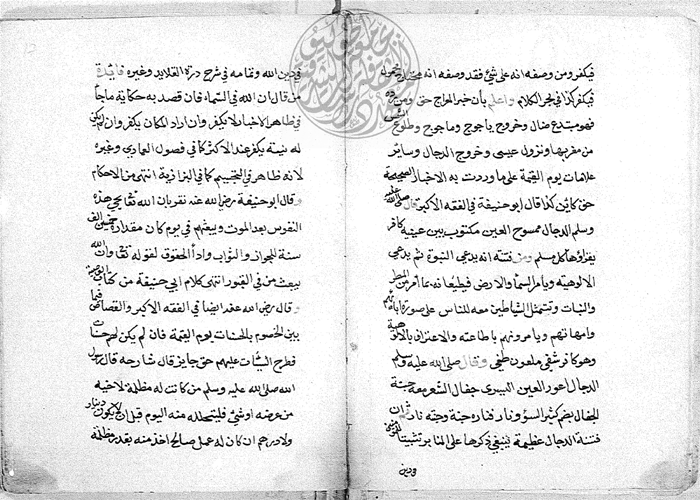 فيكفر ومن وصفه انه على شئ فقد وصفه انه محمول
فيكفر كذا في بحر الكلام واعلم بأن خبر المعراج حق ومن رده
فهو مبتدع ضال وخروج ياجوج وماجوج وطلوع الشمس
من مغربها ونزول عيسى وخروج الدجال وسائر
علامات يوم القيمة على ما وردت به الاخبار الصحيحة
حق كائن كذا قال ابوحنيفة في الفقه الاكبر قال صلى الله عليه
وسلم الدجال ممسوح العين مكتوب بين عينيه كافر
يقراؤها كل مسلم ومن فتنته انه يدعي النبوة ثم يدعي
الالوهية ويامر السماء والارض فيطيعانه بما أمر من المطر
والنبات وتتمثل الشياطين معه للناس على صورة ابائهم
وامهاتهم ويامرونهم باطاعته والاعتراف بالالوهية
وهو كافر شقي ملعون طغى وقال صلى الله عليه وسلم
الدجال اعور العين اليسرى جفال الشعر معه جنة
الجفال بضم كثير الشعر ونار فناره جنة وجنته نار ثم ان
فتنة الدجال عظيمة ينبغي ذكرها على المنابر تثبيتا
ودين
في دين الله وتمامه في شرح درة القلايد وغيره فائدة
من قال ان الله في السماء فان قصد به حكاية ما جاء
في ظاهر الاخبار لا يكفر وان اراد المكان يكفر وان لم يكن
له نية يكفر عند الاكثر كما في فصول العمادي وغيره
لانه ظاهر في التجسيم كما في البزازية انتهى من الاحكام
وقال ابوحنيفة رضي الله عنه نقر بان الله تعالى يحيي هذه
النفوس بعد الموت ويبعثهم في يوم كان مقداره خمسين الف
سنة للجزاء والثواب واداء الحقوق لقوله تعالى وان الله
يبعث من في القبور انتهى كلام ابي حنيفة من كتاب الوصية
وقال رضي الله عنه ايضا في الفقه الاكبر والقصاص فيما
بين الخصوم بالحسنات يوم القيمة فان لم يكن لهم حسنات
فطرح السيئات عليهم حق جايز قال شارحه قال رسول
الله صلى الله عليه وسلم من كانت له مظلمة لاخيه
من عرضه او شئ فليتحلله منه اليوم قبل ان لا يكون دينار
ولا درهم ان كان له عمل صالح اخذ منه بقدر مظلمته